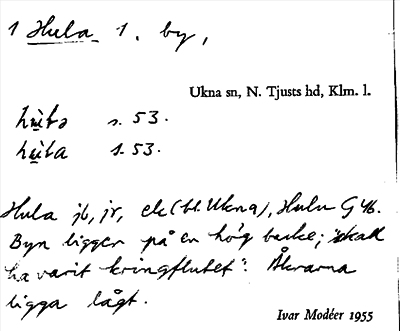 1 Hula 1. by,
Ukna sn, N. Tjusts hd, Klm. l.
s. 53.
s. 53.
Hula jb, jr, ek (bl. Ukna), Hulu G 46.
Byn ligger på en hög backe; "skall
ha varit kringflutet". Åkrarna
ligga lågt.
Ivar Modéer 1955